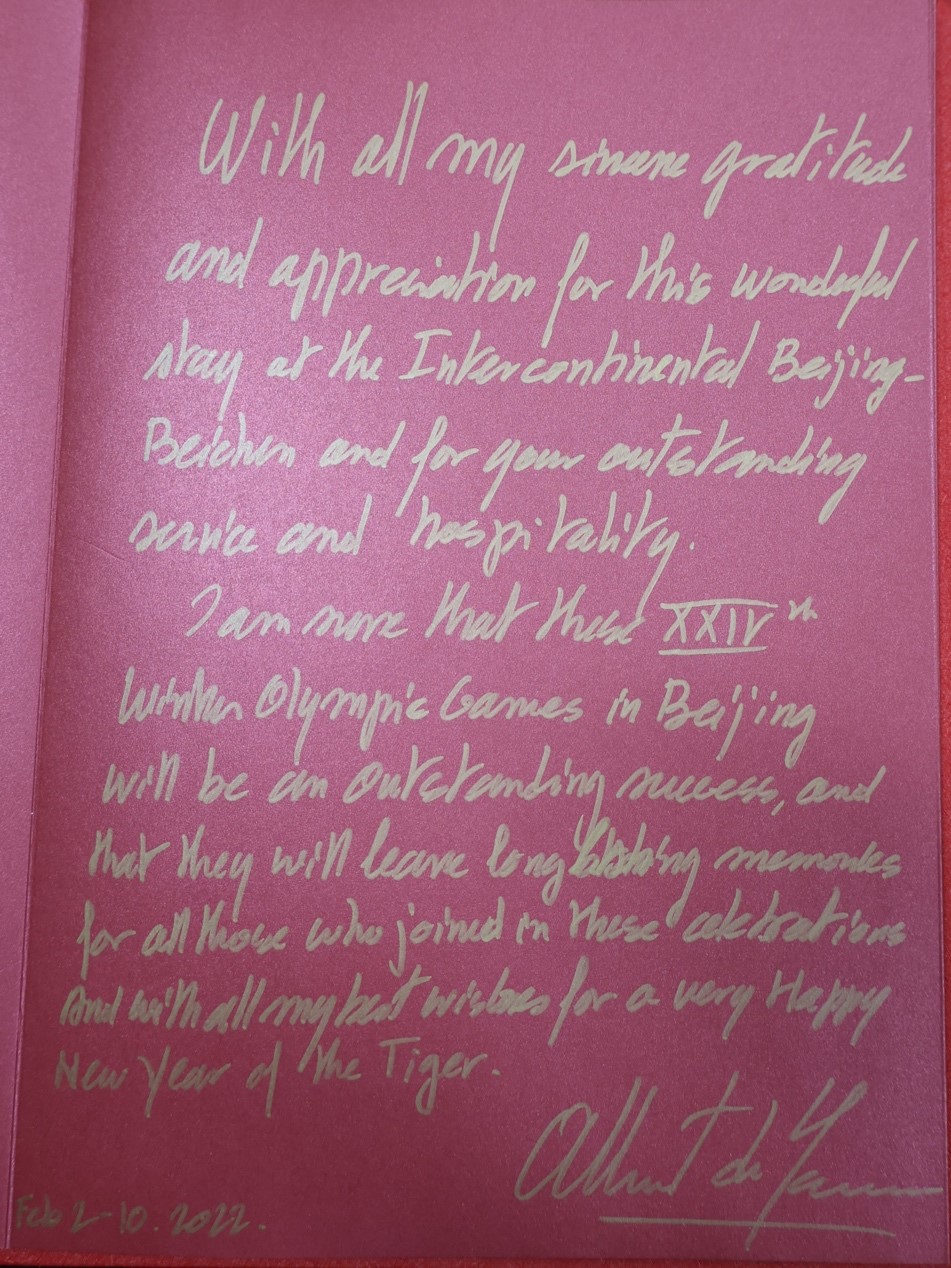 With all my sincere gratitude
and appreciation for this wonderful
stay at the Intercontinental Beijing-
Beichen and for your outstanding
service and hospitality.
I am sure that these XXIVth
Winter Olympic Games in Beijing
will be an outstanding success, and
that they will leave long lasting memories
for all those who joined in these celebrations
And with all my best wishes for a very Happy
New Year of the Tiger.
Albert de
Feb 2-10. 2022.